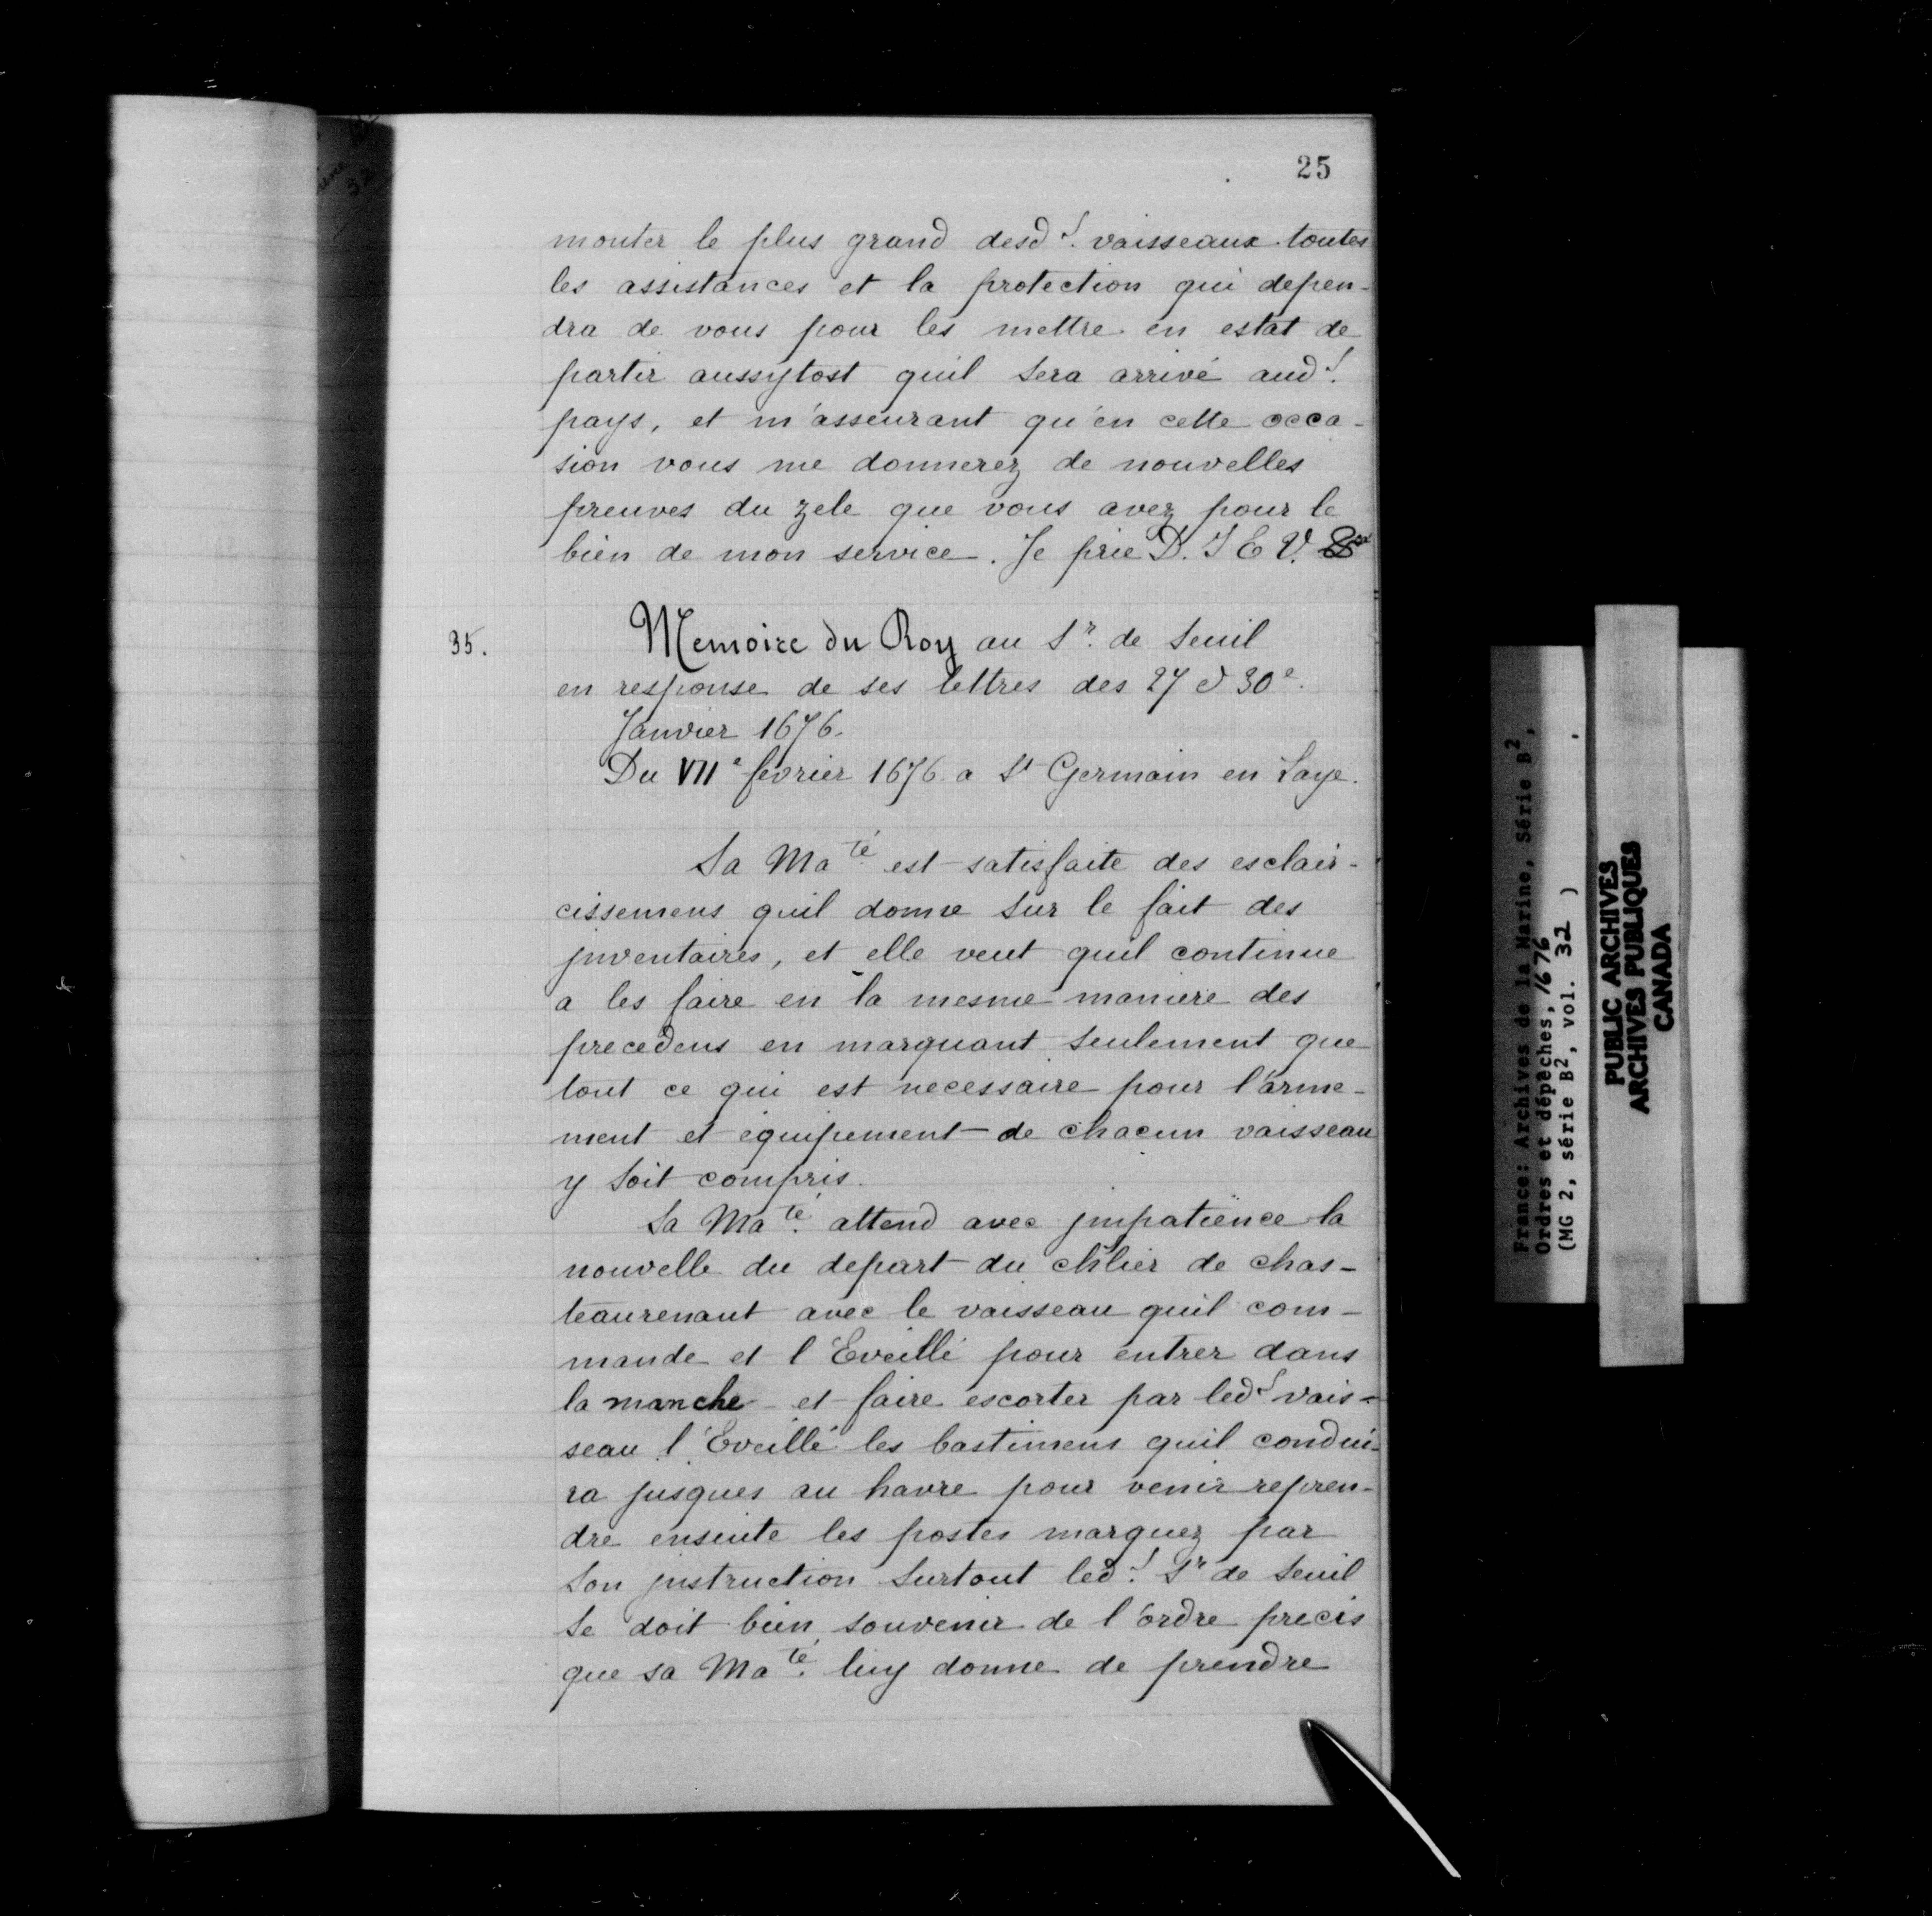 25
monter le plus grand desd. vaisseaux toutes
les assistances et la protection qui depen-
dra de vous pour les mettre en estat de
partir aussytost quil sera arrivé aud.
pays, et m'asseurant qu'en cette occa-
sion vous me donnerez de nouvelles
preuves du zele que vous avez pour le
bien de mon service. Je prie D. J E V.
35.
Memoire du Roy au Sr. de Seuil
en response de ses lettres des 27 & 30e.
Janvier 1676.
Du VIIe fevrier 1676 a St Germain en Laye.
Sa Maté est satisfaite des esclair-
cissemens quil donne sur le fait des
jnventaires, et elle veut quil continue
a les faire en la mesme maniere des
precedens en marquant seulement que
tout ce qui est necessaire pour l'arme-
ment et equipement de chacun vaisseau
y soit compris.
Sa Maté. attend avec jmpatience la
nouvelle du depart du chlier de chas-
teaurenant avec le vaisseau quil com-
mande et l'Eveillé pour entrer dans
la manche et faire escorter par led vais-
seau l'Eveillé les bastimens quil condui-
ra jusques au havre pour venir repren-
dre ensuite les postes marquez par
son jnstruction surtout led. Sr de Seuil
se doit bien souvenir de l'ordre precis
que sa Maté. luy donne de prendre
France: Archives de la Marine, Série B2,
Ordres et dépêches, 1676
(MG 2, série B2, vol. 32 )
PUBLIC ARCHIVES
ARCHIVES PUBLIQUES
CANADA